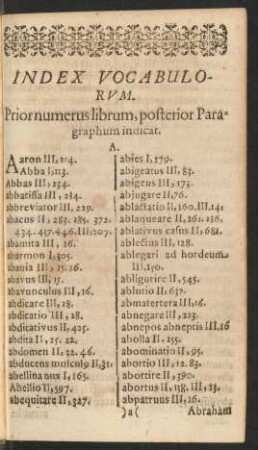 INDEX VOCABULO-
RVM.
Prior numerus librum, posterior Para-
graphum indicat.
A.
Aaron III, 214.
Abba I, 213.
Abbas III, 234.
abbatissa III, 234.
abbreviator III, 229.
abacus II, 283. 285. 372.
434. 437. 446. III, 207.
abamita III, 16.
abarmon I, 305.
abavia III, 15. 16.
abavus III, 17.
abavunculus III, 16.
abdicare III, 28.
abdicatio III, 28.
abdicativus II, 425.
abdita II, 25. 22.
abdomen II, 32. 46.
abducens musculus II, 31.
abellina nux I, 165.
Abellio II, 597.
abequitare II, 327.
abies I, 170.
abigeatus III, 83.
abigeus III, 175.
abjugare II, 76.
ablactatio II, 160. III, 141
ablaqueare II, 261. 136.
ablativus casus II, 682.
ablectus III, 128.
ablegari ad hordeum
III, 150.
abligurire II, 545.
ablutio II, 637.
abmatertera III, 16.
abnegare III, 213.
abnepos abneptis III, 16
abolla II, 255.
abominatio II, 95.
abortio III, 12. 83.
abortire II, 390.
abortus II, 138. III, 13.
abpatruus III, 16.
)a( Abraham